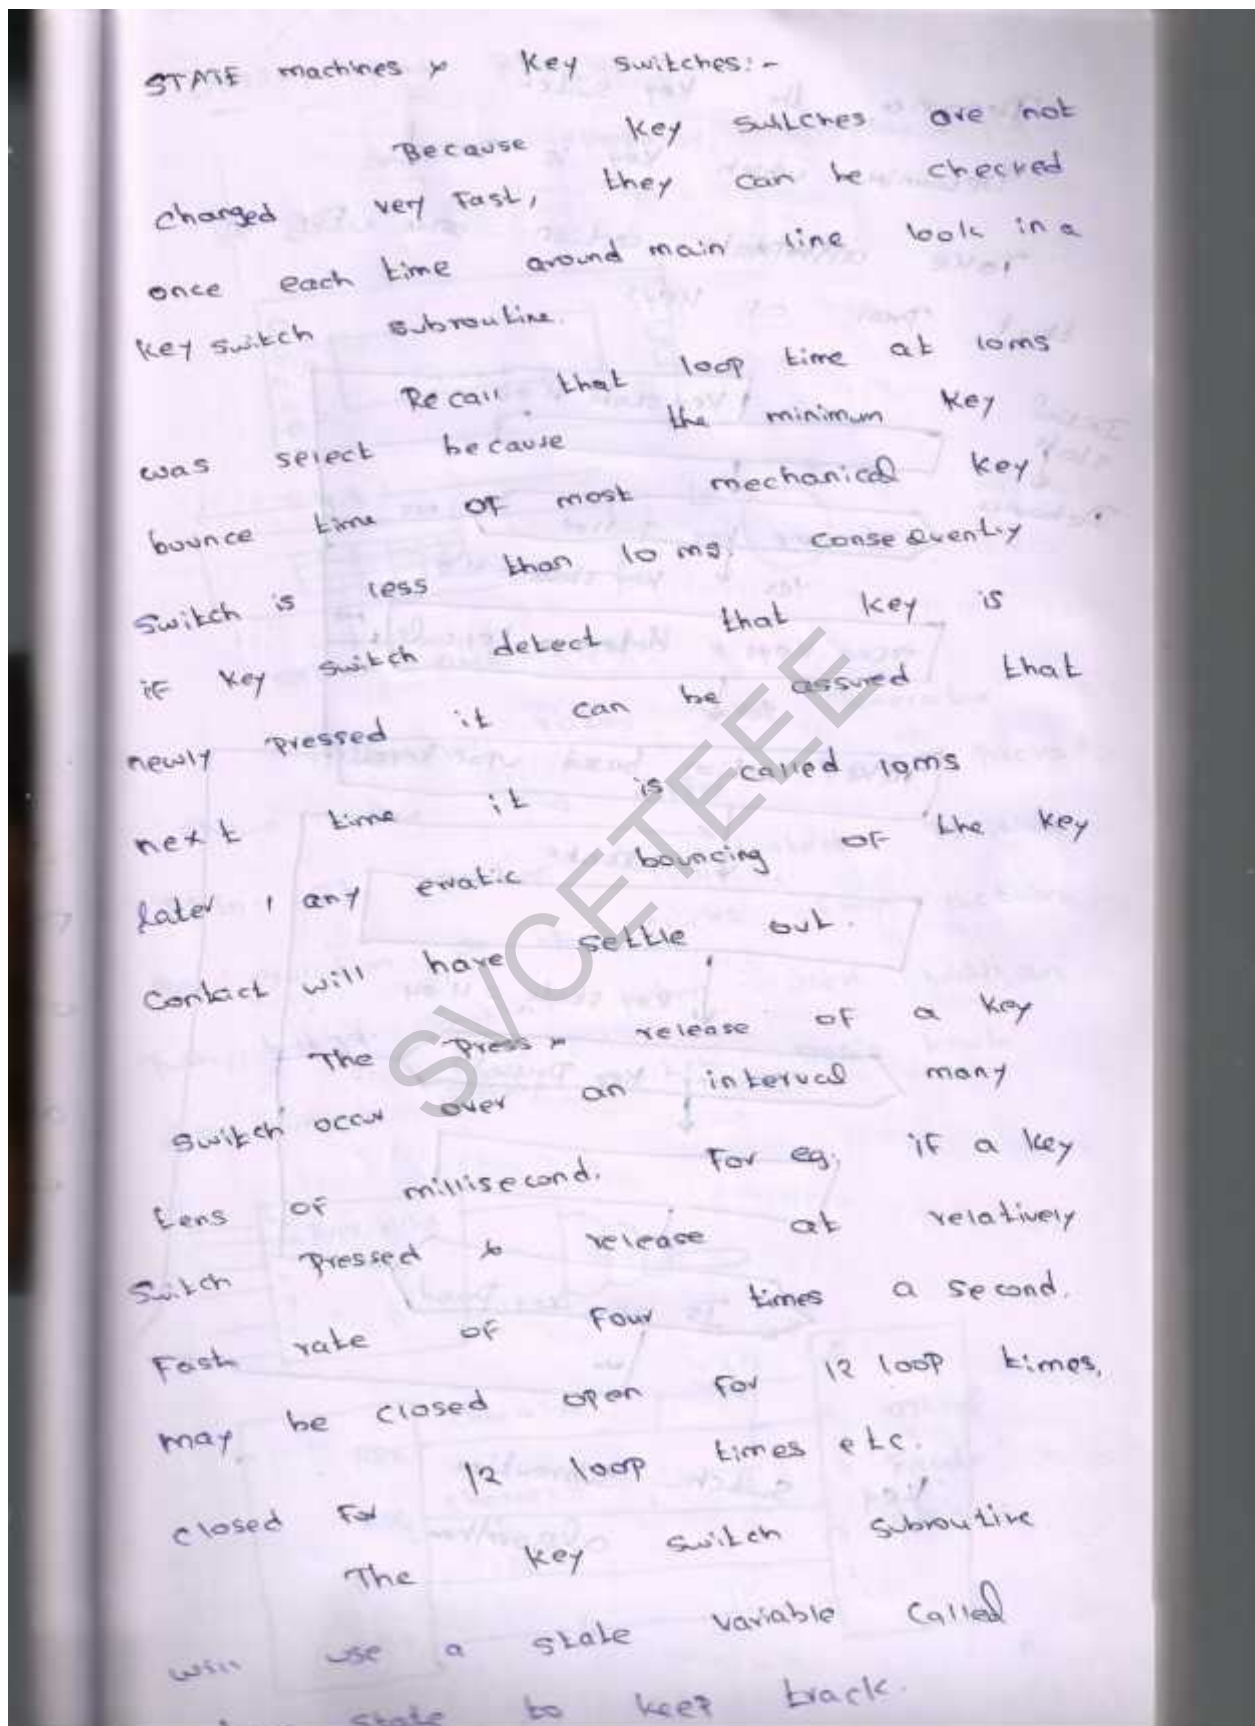 STATE machines & Key switches:-
Because Key switches are not
changed very Fast, they can be checked
once each time around main line look in a
key switch subroutine.
Recall that loop time at 10ms
was select because the minimum key
bounce time OF most mechanical key
Switch is less than 10 ms. Consequently
if key switch detect that key is
newly pressed it can be assured that
next time it is called 10ms
later, any erratic bouncing OF the key
Contact will have settle out.
The press & release of a key
Switch occur over an interval many
tens of millisecond. For eg. if a key
Switch pressed & release at relatively
Fast rate of Four times a second.
may be closed open for 12 loop times,
closed For 12 loop times etc.
The key switch subroutine
will use a state variable called
state to keep track.
SVCETEEE